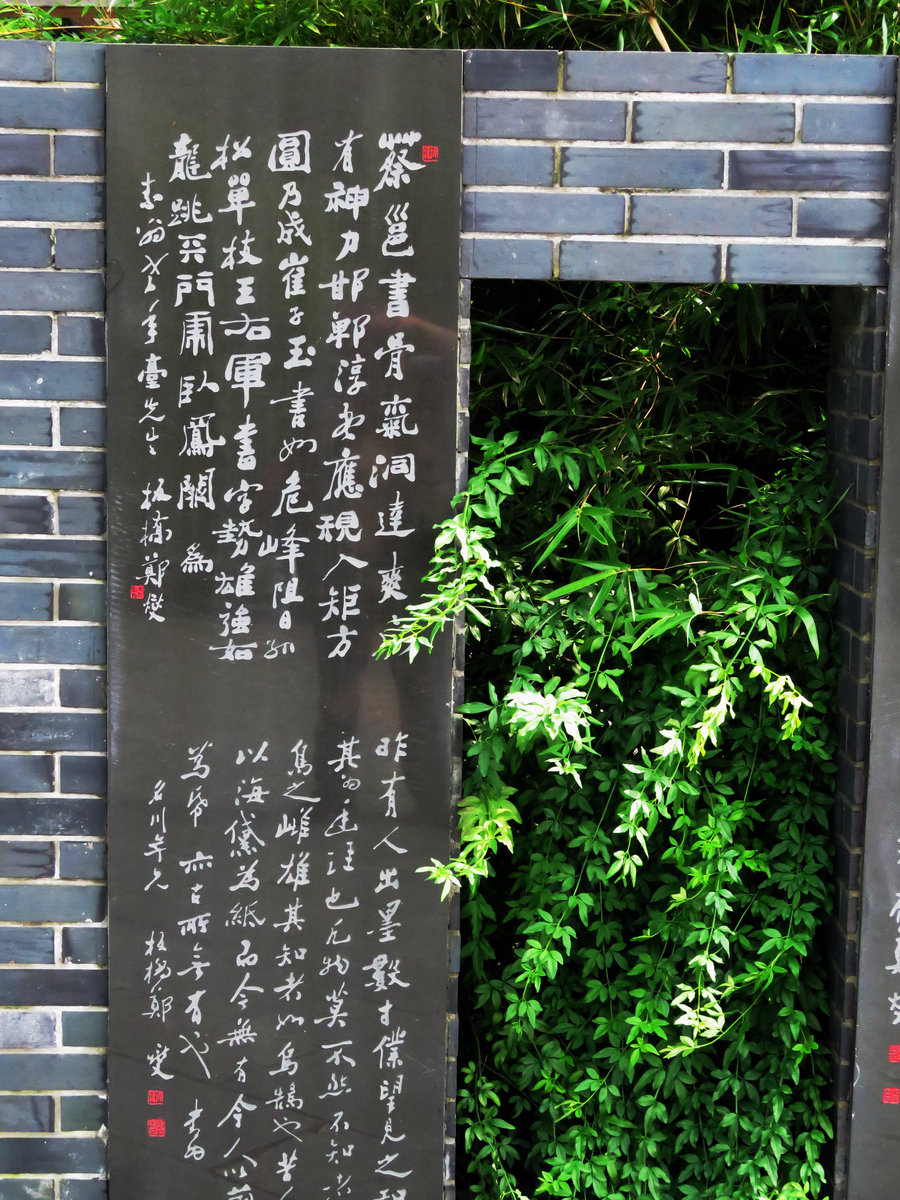 蔡邕書骨氣洞達爽爽
有神力邯鄲淳書應規入矩方
圓乃成崔子玉書如危峰阻日孤
松單枝王右軍書字勢雄強如
龍跳天門虎臥鳳闕為
素翁老年臺先生 板橋鄭燮
昨有人出墨數寸僕望見之知
其為廷珪也凡物莫不然不知者如
鳥之雌雄其知者如烏鵠也昔人
以海苔為紙而今無有今人以竹
為紙亦古所無有也 書為
名川年兄 板橋鄭燮